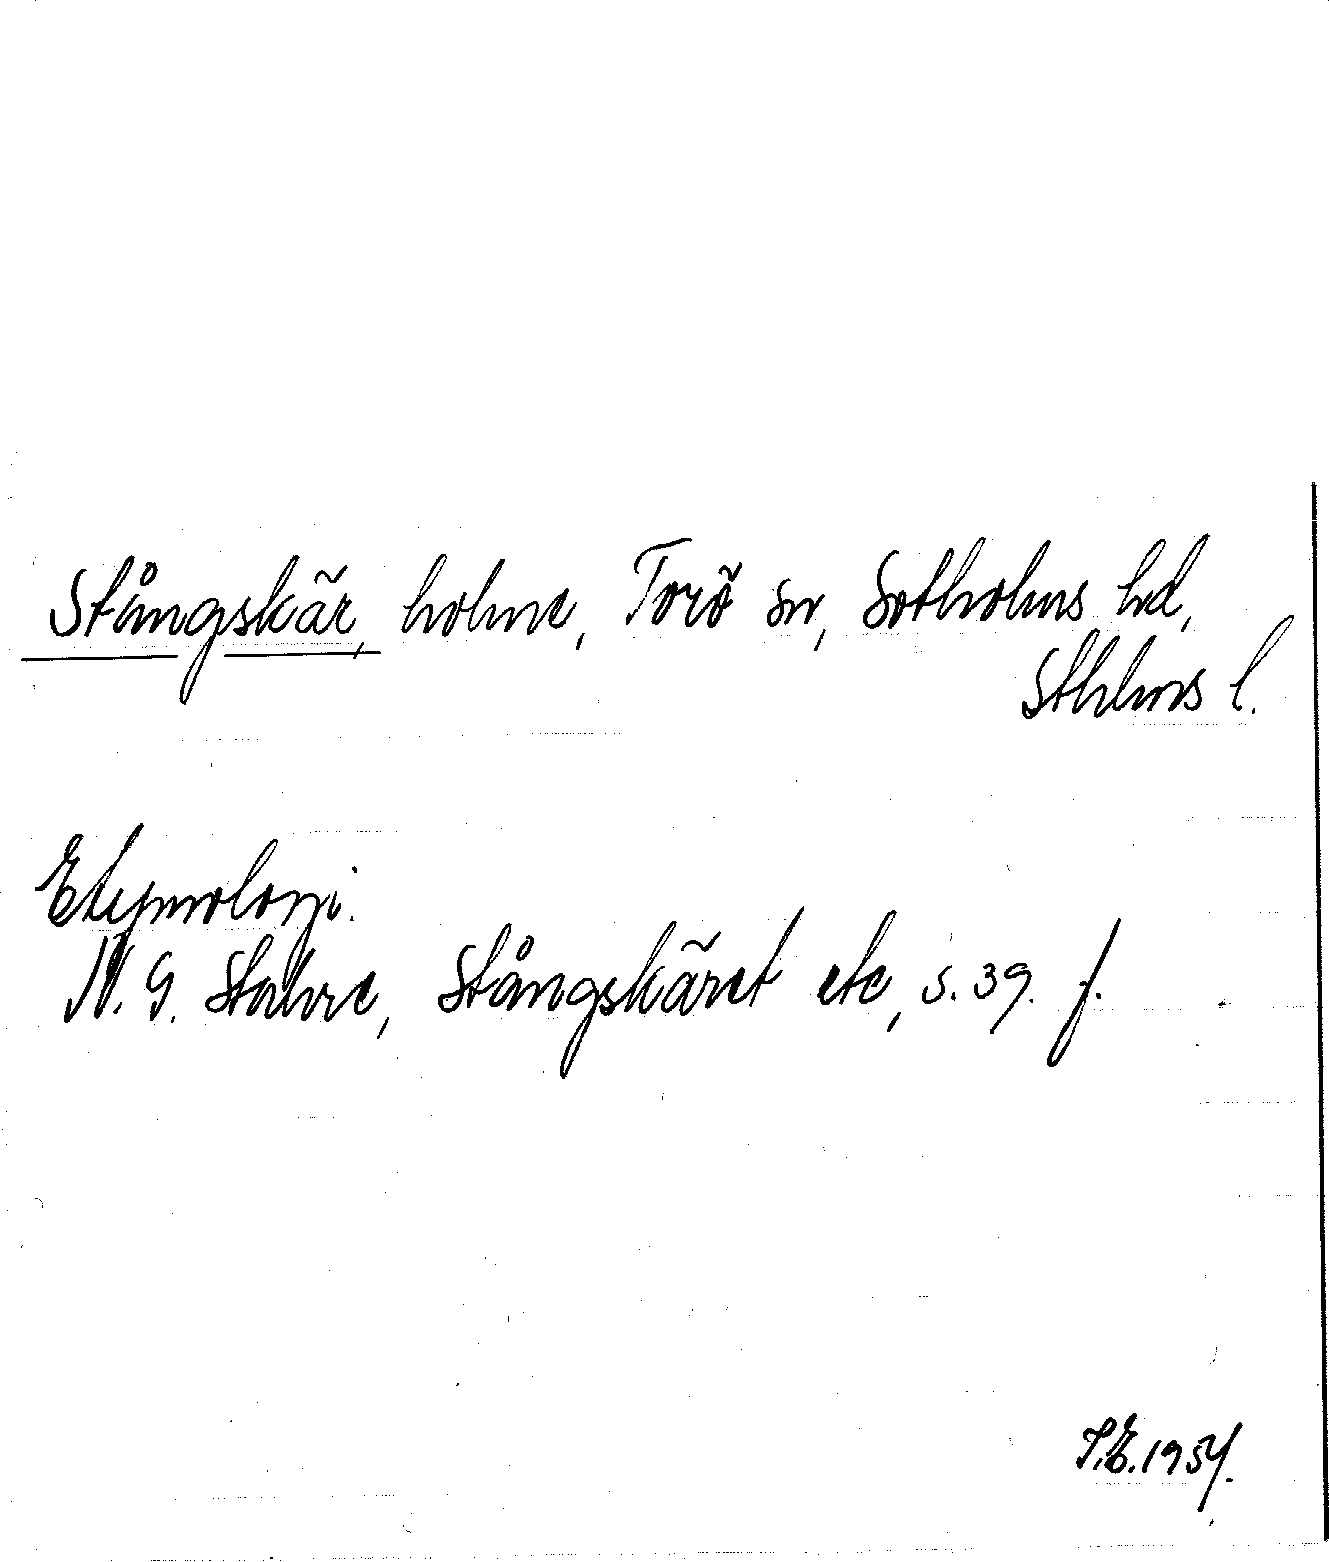 Stångskär, holme, Torö sn, Sotholms hd,
Sthlms l.
Etymologi.
N. G. Stahre, Stångskäret etc, s. 39. f.
S.E. 1954.